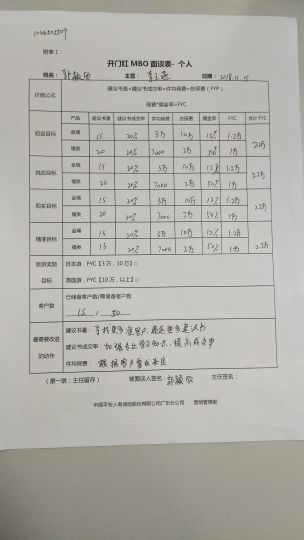 附表 1：
开门红 MBO 面谈表- 个人
姓名： 主管： 日期：2018.11.15
价值公式 建议书量×建议书成交率×件均保费=总保费（FYP）
保费*佣金率=FYC
产品 建议书量 建议书成交率 件均保费 总保费 佣金率 FYC 合计 FYC
初定目标 金瑞 15 20% 3万 10万 12% 1.2万 2.2万
福类 20 20% 7000 2万 50% 1万
挑战目标 金瑞 15 20% 3万 10万 12% 1.2万 2.2万
福类 20 20% 7000 2万 50% 1万
现实目标 金瑞 15 20% 3万 10万 12% 1.2万 2.2万
福类 20 20% 7000 2万 50% 1万
精准目标 金瑞 15 20% 3万 10万 12% 1.2万 2.2万
福类 15 20% 7000 2万 50% 1万
旅游奖励 日本游，FYC【3 万，10 万】○
目标 英国游，FYC【10 万，以上】○
客户数 已储备客户数/需储备客户数
15 / 50
最需要改进的动作 建议书量：寻找更多准客户，
建议书成交率：加强专业学习知识，提高成交率
件均保费：根据客户需求来定
（第一联：主任留存） 被面谈人签名： 主任签名：
中国平安人寿保险股份有限公司广东分公司 营销管理部